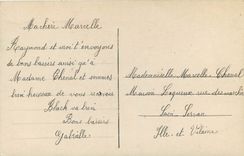 Ma chère Marcelle
Raymond et moi t'envoyons
de bons baisers ainsi qu'à
Madame Chenel et sommes
bien heureux de vous revoir
Black va bien
Bons baisers
Mademoiselle Marcelle Chenel
Maison Lagueux rue des
Ille-et-Vilaine